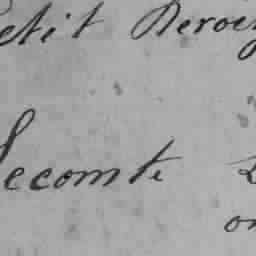 Petit Deroc
Lecomte
on